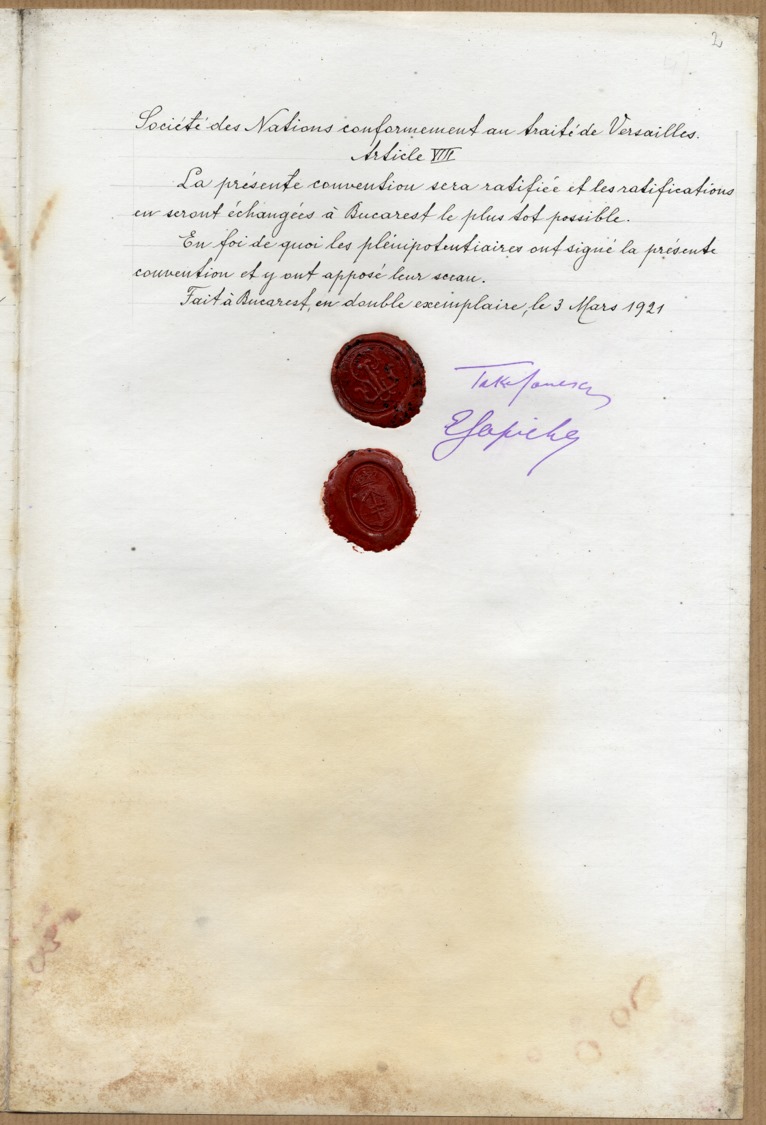 2
Société des Nations conformement au traité de Versailles.
Article VIII
La présente convention sera ratifiée et les ratifications
en seront échangées à Bucarest le plus tot possible.
En foi de quoi les plénipotentiaires ont signé la présente
convention et y ont apposé leur sceau.
Fait à Bucarest, en double exemplaire, le 3 Mars 1921
Take Jonescu